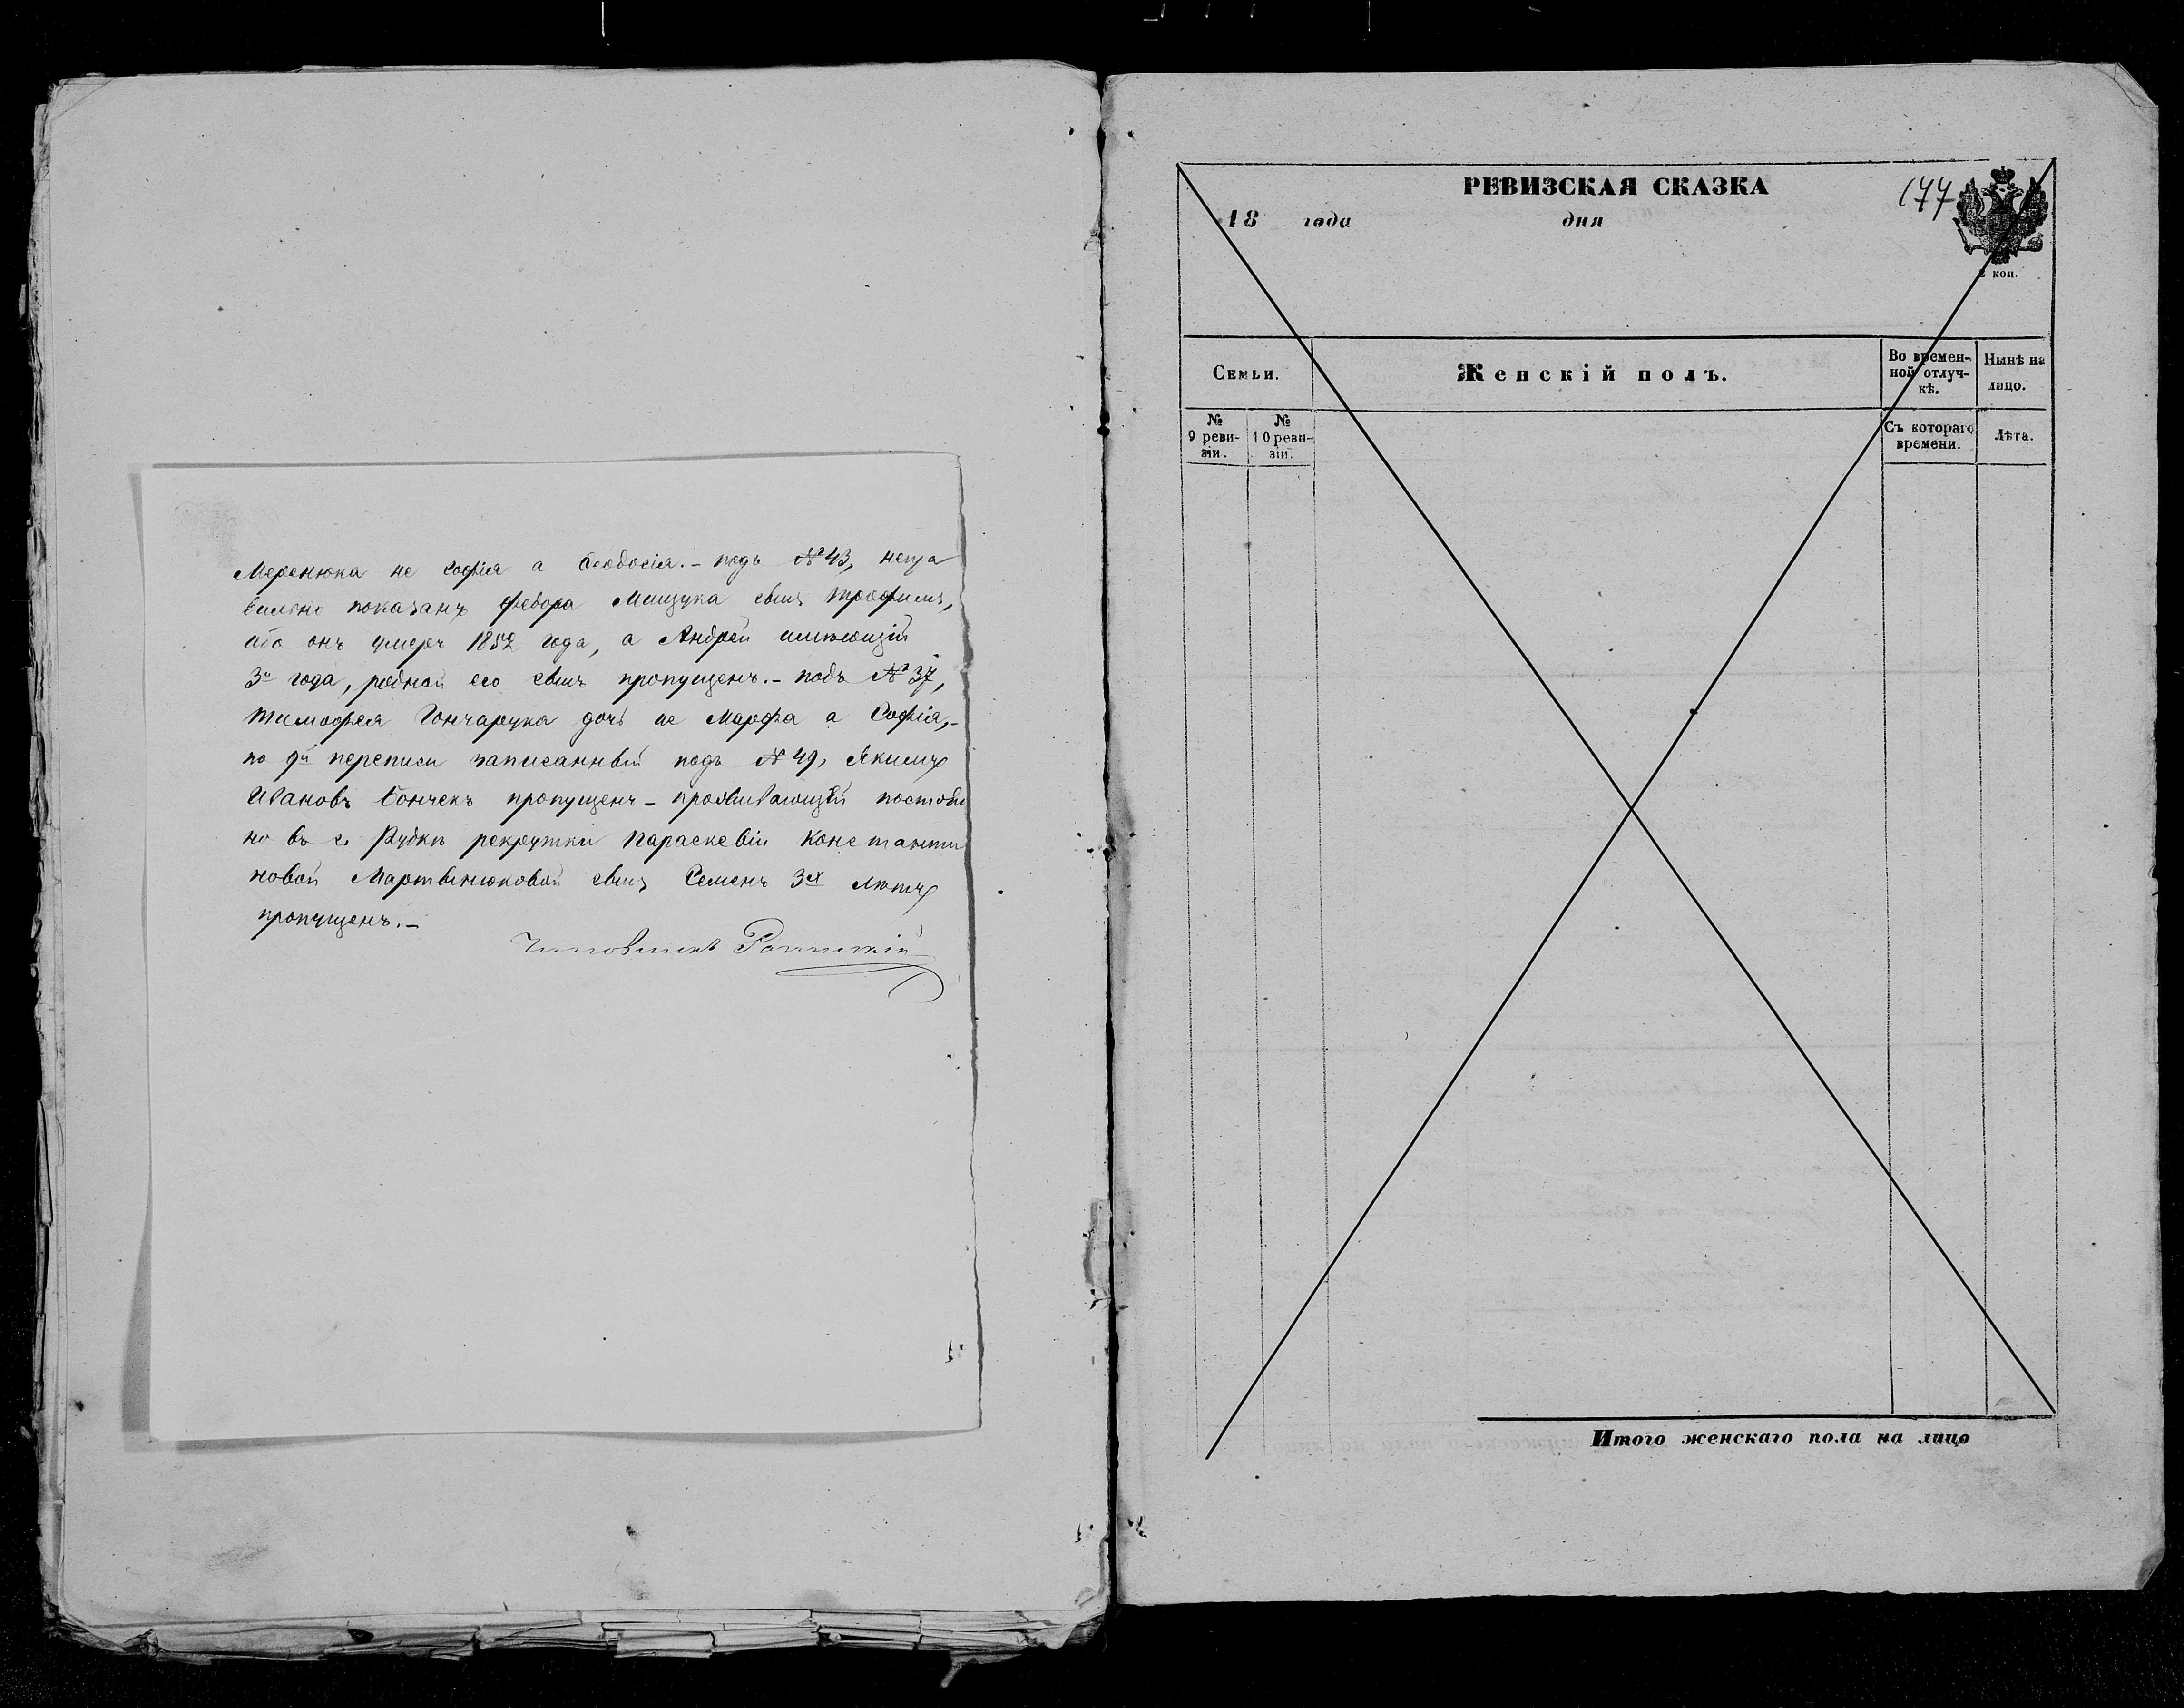 Меренюка не Софія а Ѳеодосія. - подъ № 43, непра
вильно показанъ Федора Мищука сынъ Трофимъ,
ибо онъ умеръ 1852 года, а Андрей имѣющій
3и года, родной его сынъ пропущенъ. - подъ № 37,
Тимофея Гончарука дочь не Марфа а Софія, -
по 9й переписи записанный подъ № 49, Якимъ
Ивановъ Бончекъ пропущенъ - проживающій постоян
но въ с. Рудкѣ рекрутки Параскевіи Константи
новой Мартынюковой сынъ Семенъ 3х лѣтъ
пропущенъ. -
Чиновникъ
РЕВИЗСКАЯ СКАЗКА
177
18 года дня
2 коп.
Семьи.
Женскій полъ.
Во времен-
ной отлуч-
кѣ.
Нынѣ на
лицо.
№
9 реви-
зіи.
№
10 реви-
зіи.
Съ котораго
времени.
Лѣта.
Итого женскаго пола на лицо